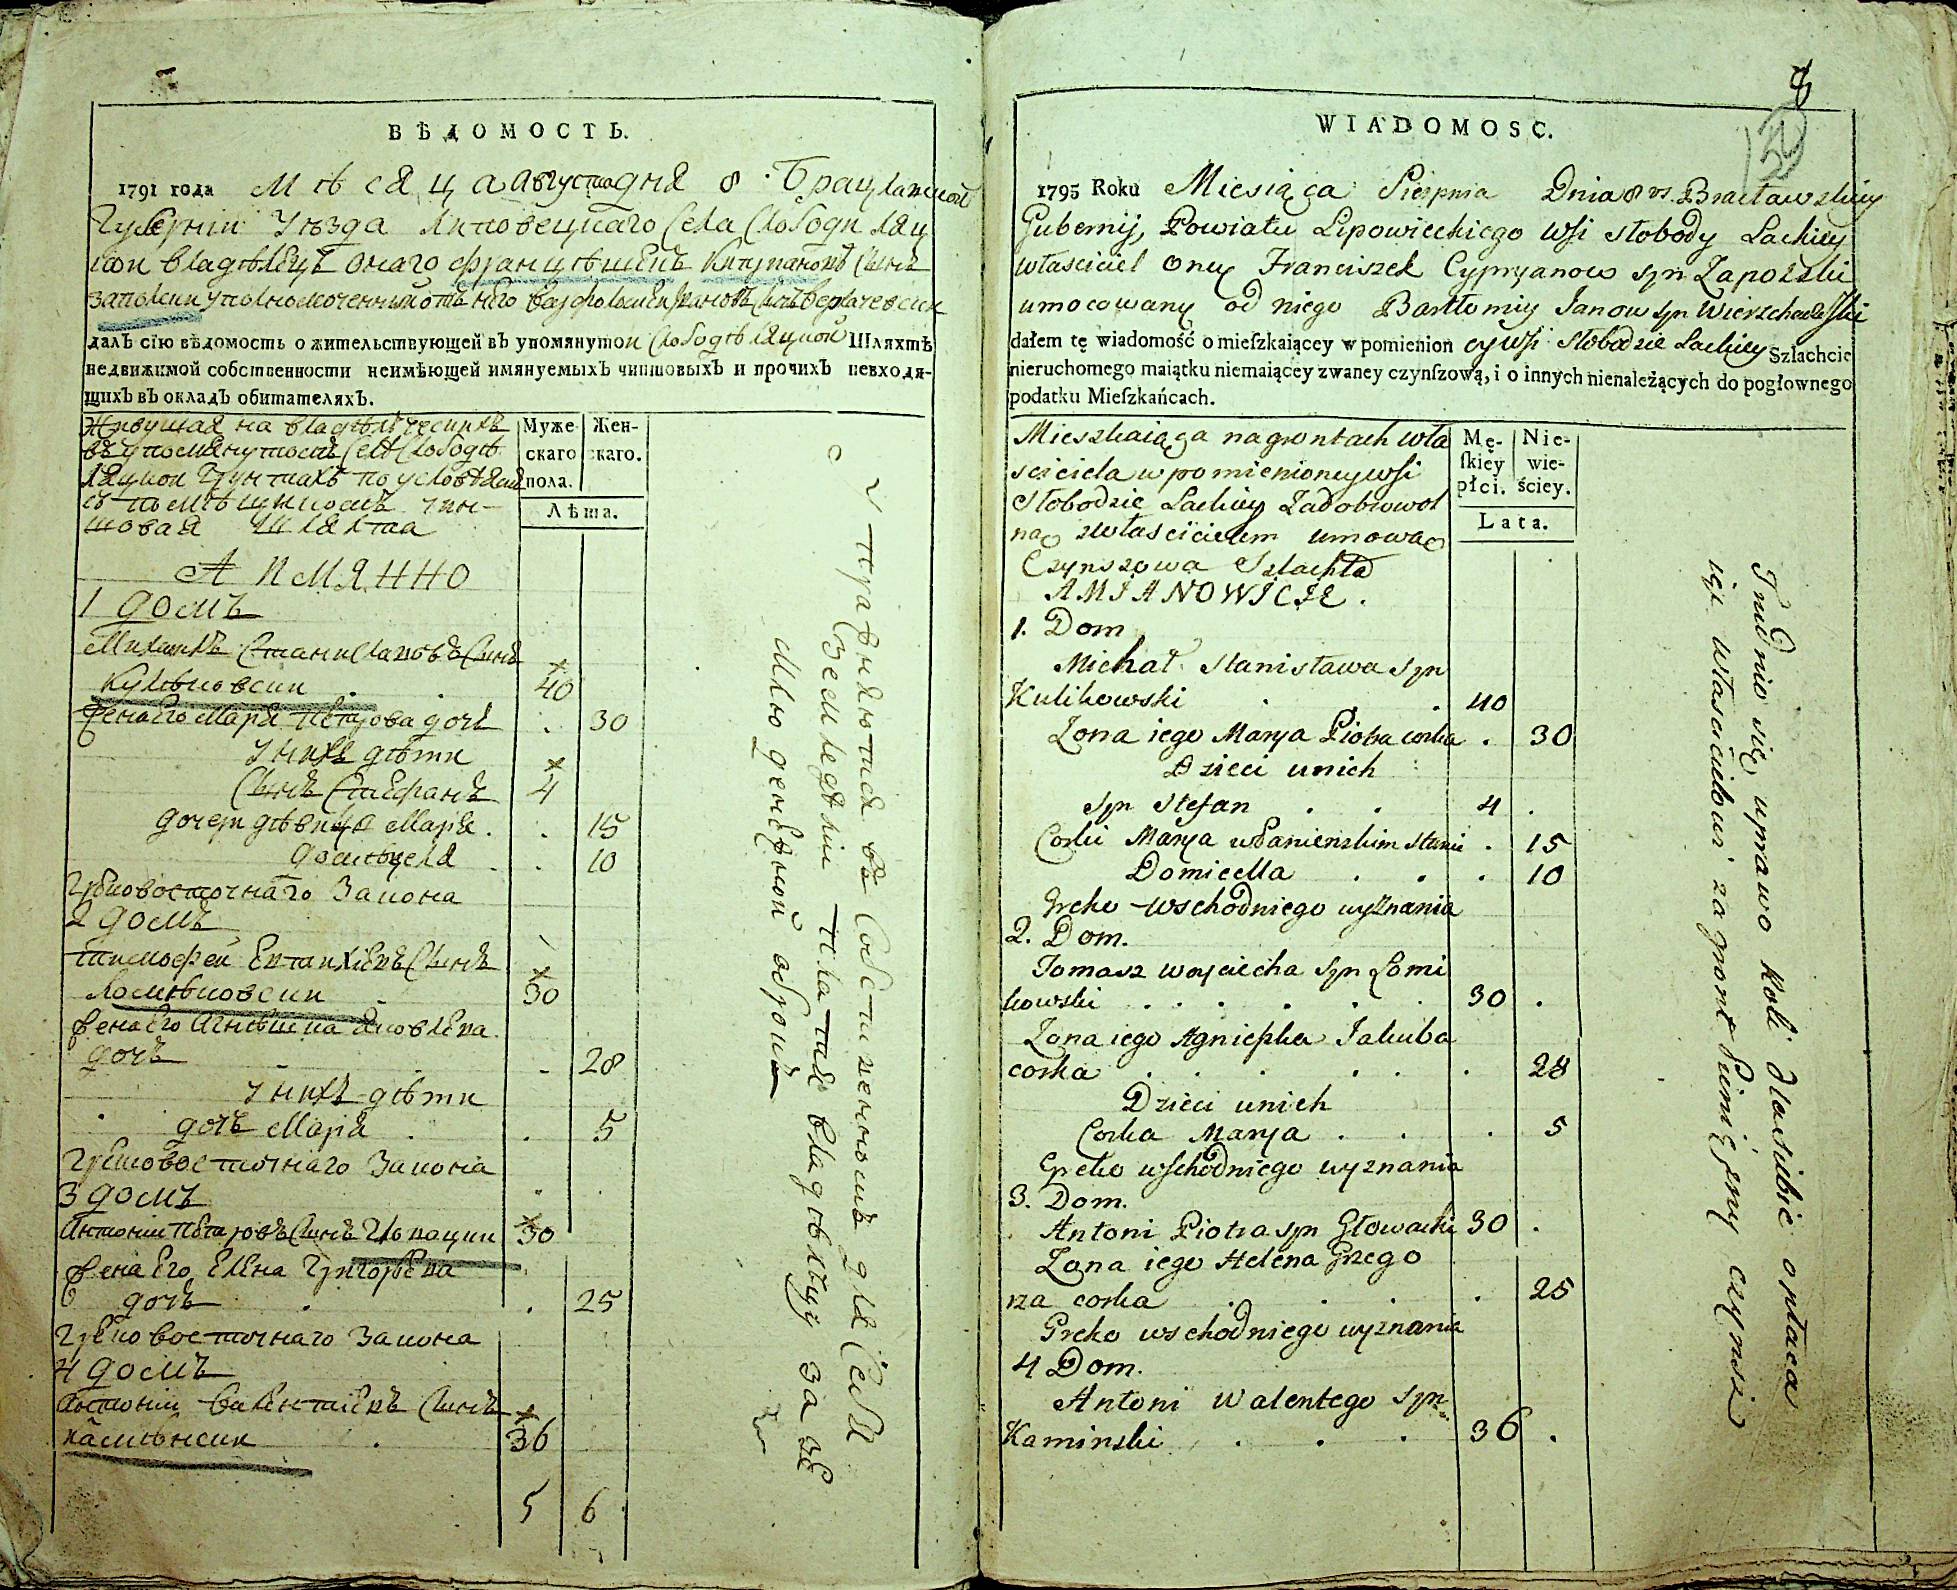 ВѢДОМОСТЬ.
1791 года Мѣсяца Августа дня 8 Брацлавской
Губернiи Уѣзда Липовецкаго Села Слободи Ляц
кой владѣлецъ онаго
далъ сiю вѣдомость о жительствующей въ упомянутой Слободѣ Ляцкой Шляхтѣ
недвижимой собственности неимѣющей имянуемыхъ чиншовыхъ и прочихъ невходя-
щихъ въ окладъ обитателяхъ.
Живущая на владѣлческихъ
въ упомянутомъ Селѣ Слободѣ
Ляцкой Грунтахъ по условiям
съ помѣщикомъ чин-
шовая Шляхта
Муже-
скаго
пола.
Жен-
скаго.
Лѣта.
А ИМЯННО
1 домъ
Михаилъ Станиславовъ Синъ
Куликовски . . 40
Жена его Марiя Петрова дочь . 30
У нихъ дѣти
Синъ Стефанъ 4
дочери дѣвици Марiя . . 15
Домицеля . . 10
Грековосточнаго Закона
2 домъ
Тимофей Синъ
Ломиковски . 30
Жена его Агнешка Яковлева
дочь . 28
У нихъ дѣти
дочь Марiя . . 5
Грековосточнаго Закона
3 домъ
Антонiи Петровъ Синъ Гловацки 30
Жена его Елена Григорьева
дочь . . 25
Грековосточнаго Закона
4 домъ
Антонiи Валентiевъ Синъ
Камѣнски . 36
5 6
Упражняются въ собственномъ для себя
земледелiи платя владѣлцу за зе
млю денежной оброкъ
8
WIADOMOSC.
1795 Roku Miesiąca Sierpnia Dnia 8 vs. Bracławskiey
Gubernij, Powiatu Lipowieckiego wsi słobody Lackiey
właściciel oney Franciszek Cypryanow syn Zapolski
umocowany od niego Bartłomiy Janow syn
dałem tę wiadomość o mieſzkaiącey w pomienion eywsi Słobodzie Lackiey Szlachcie
nieruchomego maiątku niemaiącey zwaney czynſzową, i o innych nienależących do pogłownego
podatku Mieſzkańcach.
Mieszkaiąca na gruntach wła
sciciela w pomienioneywsi
Słobodzie Lackiey Zadobrowol
ną zwłascicielem umową
Czynszowa Szlachta
Mę-
ſkiey
płci.
Nie-
wie-
ściey.
Lata.
AMIANOWICIE.
1. Dom
Michał Stanisława syn
Kulikowski . . 40
Zona iego Marya Piotra corka . 30
Dzieci unich
Syn Stefan . . 4 .
Corki Marya wPanienskim stanie . 15
Domicella . . . 10
Greko wschodniego wyznania
2. Dom.
Tomasz woyciecha Syn Łomi
kowski . . . . . . 30 .
Zona iego Agnieszka Jakuba
corka . . . . . . 28
Dzieci unich
Corka Marya . . . 5
Greko wschodniego wyznania
3. Dom.
Antoni Piotra syn Głowacki 30 .
Zona iego Helena Grzego
rza corka . . . . 25
Greko wschodniego wyznania
4 Dom.
Antoni Walentego Syn
Kaminski . . . 36 .
Trudnią się uprawo Roli dlasiebie opłaca
iąc właścicielowi za grunt Pieniężny czynsz